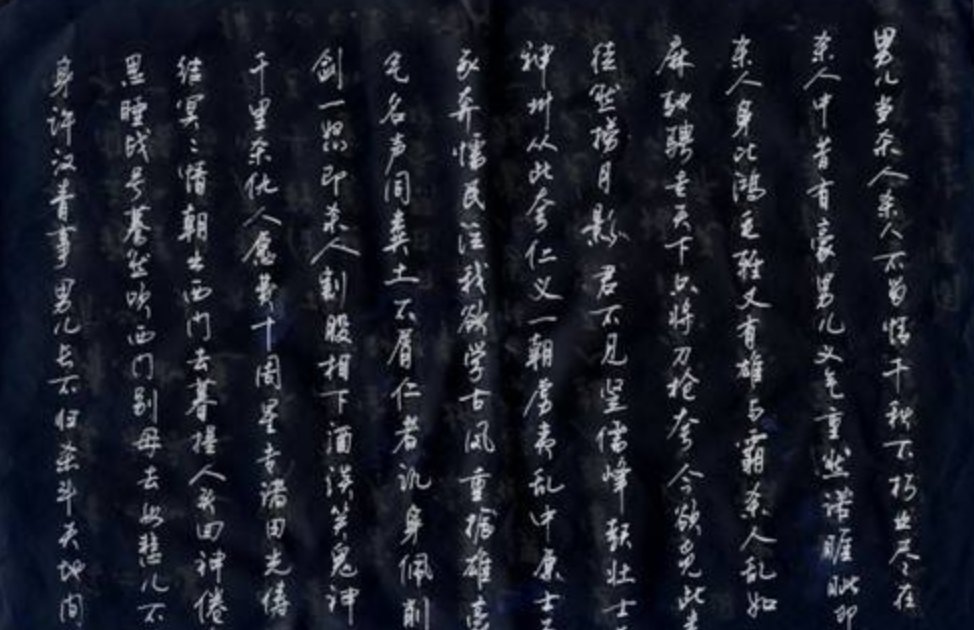 男儿当杀人杀人不留情千秋不朽业尽在
杀人中昔有豪男儿义气重然诺睚眦即
杀人身比鸿毛轻又有雄与霸杀人乱如
麻驰骋走天下只将刀枪夸今欲觅此类
徒然捞月影君不见竖儒蜂起壮士
神州从此夸仁义一朝虏夷乱中原士
豕奔懦民泣我欲学古风重振雄豪
名声同粪土不屑仁者讥身佩削
剑一怒即杀人割股相下酒谈笑鬼神
千里杀仇人愿费十周星专诸田光俦
结冥冥情朝出西门去暮提人头回神倦
思睡战号蓦然吹西门别母去母悲儿不
身许汗青事男儿长不归杀斗天地间